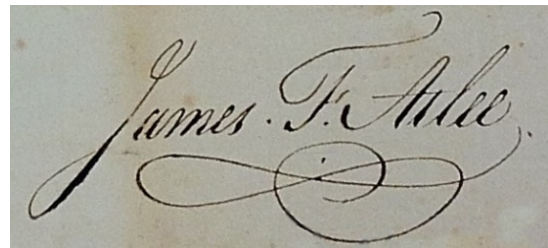 James. F. Atlee.